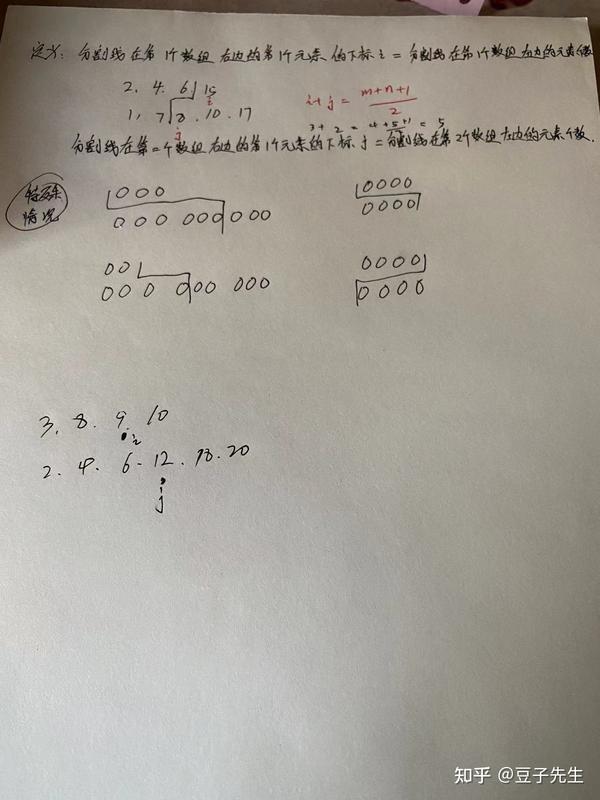 定义: 分割线在第1个数组右边的第1个元素的下标 i = 分割线在第1个数组左边的元素个数
2. 4. 6 15
i
i+j = m+n+1
2
1, 7 8. 10. 17
j
3+ 2 = 4+5+1 = 5
2
分割线在第二个数组右边的第1个元素的下标 j = 分割线在第2个数组左边的元素个数.
特殊情况
000
0000
00 0 000 000
0000
00
0000
000 000 000
0000
3. 8. 9. 10
i
2. 4. 6. 12. 18. 20
j
知乎 @豆子先生